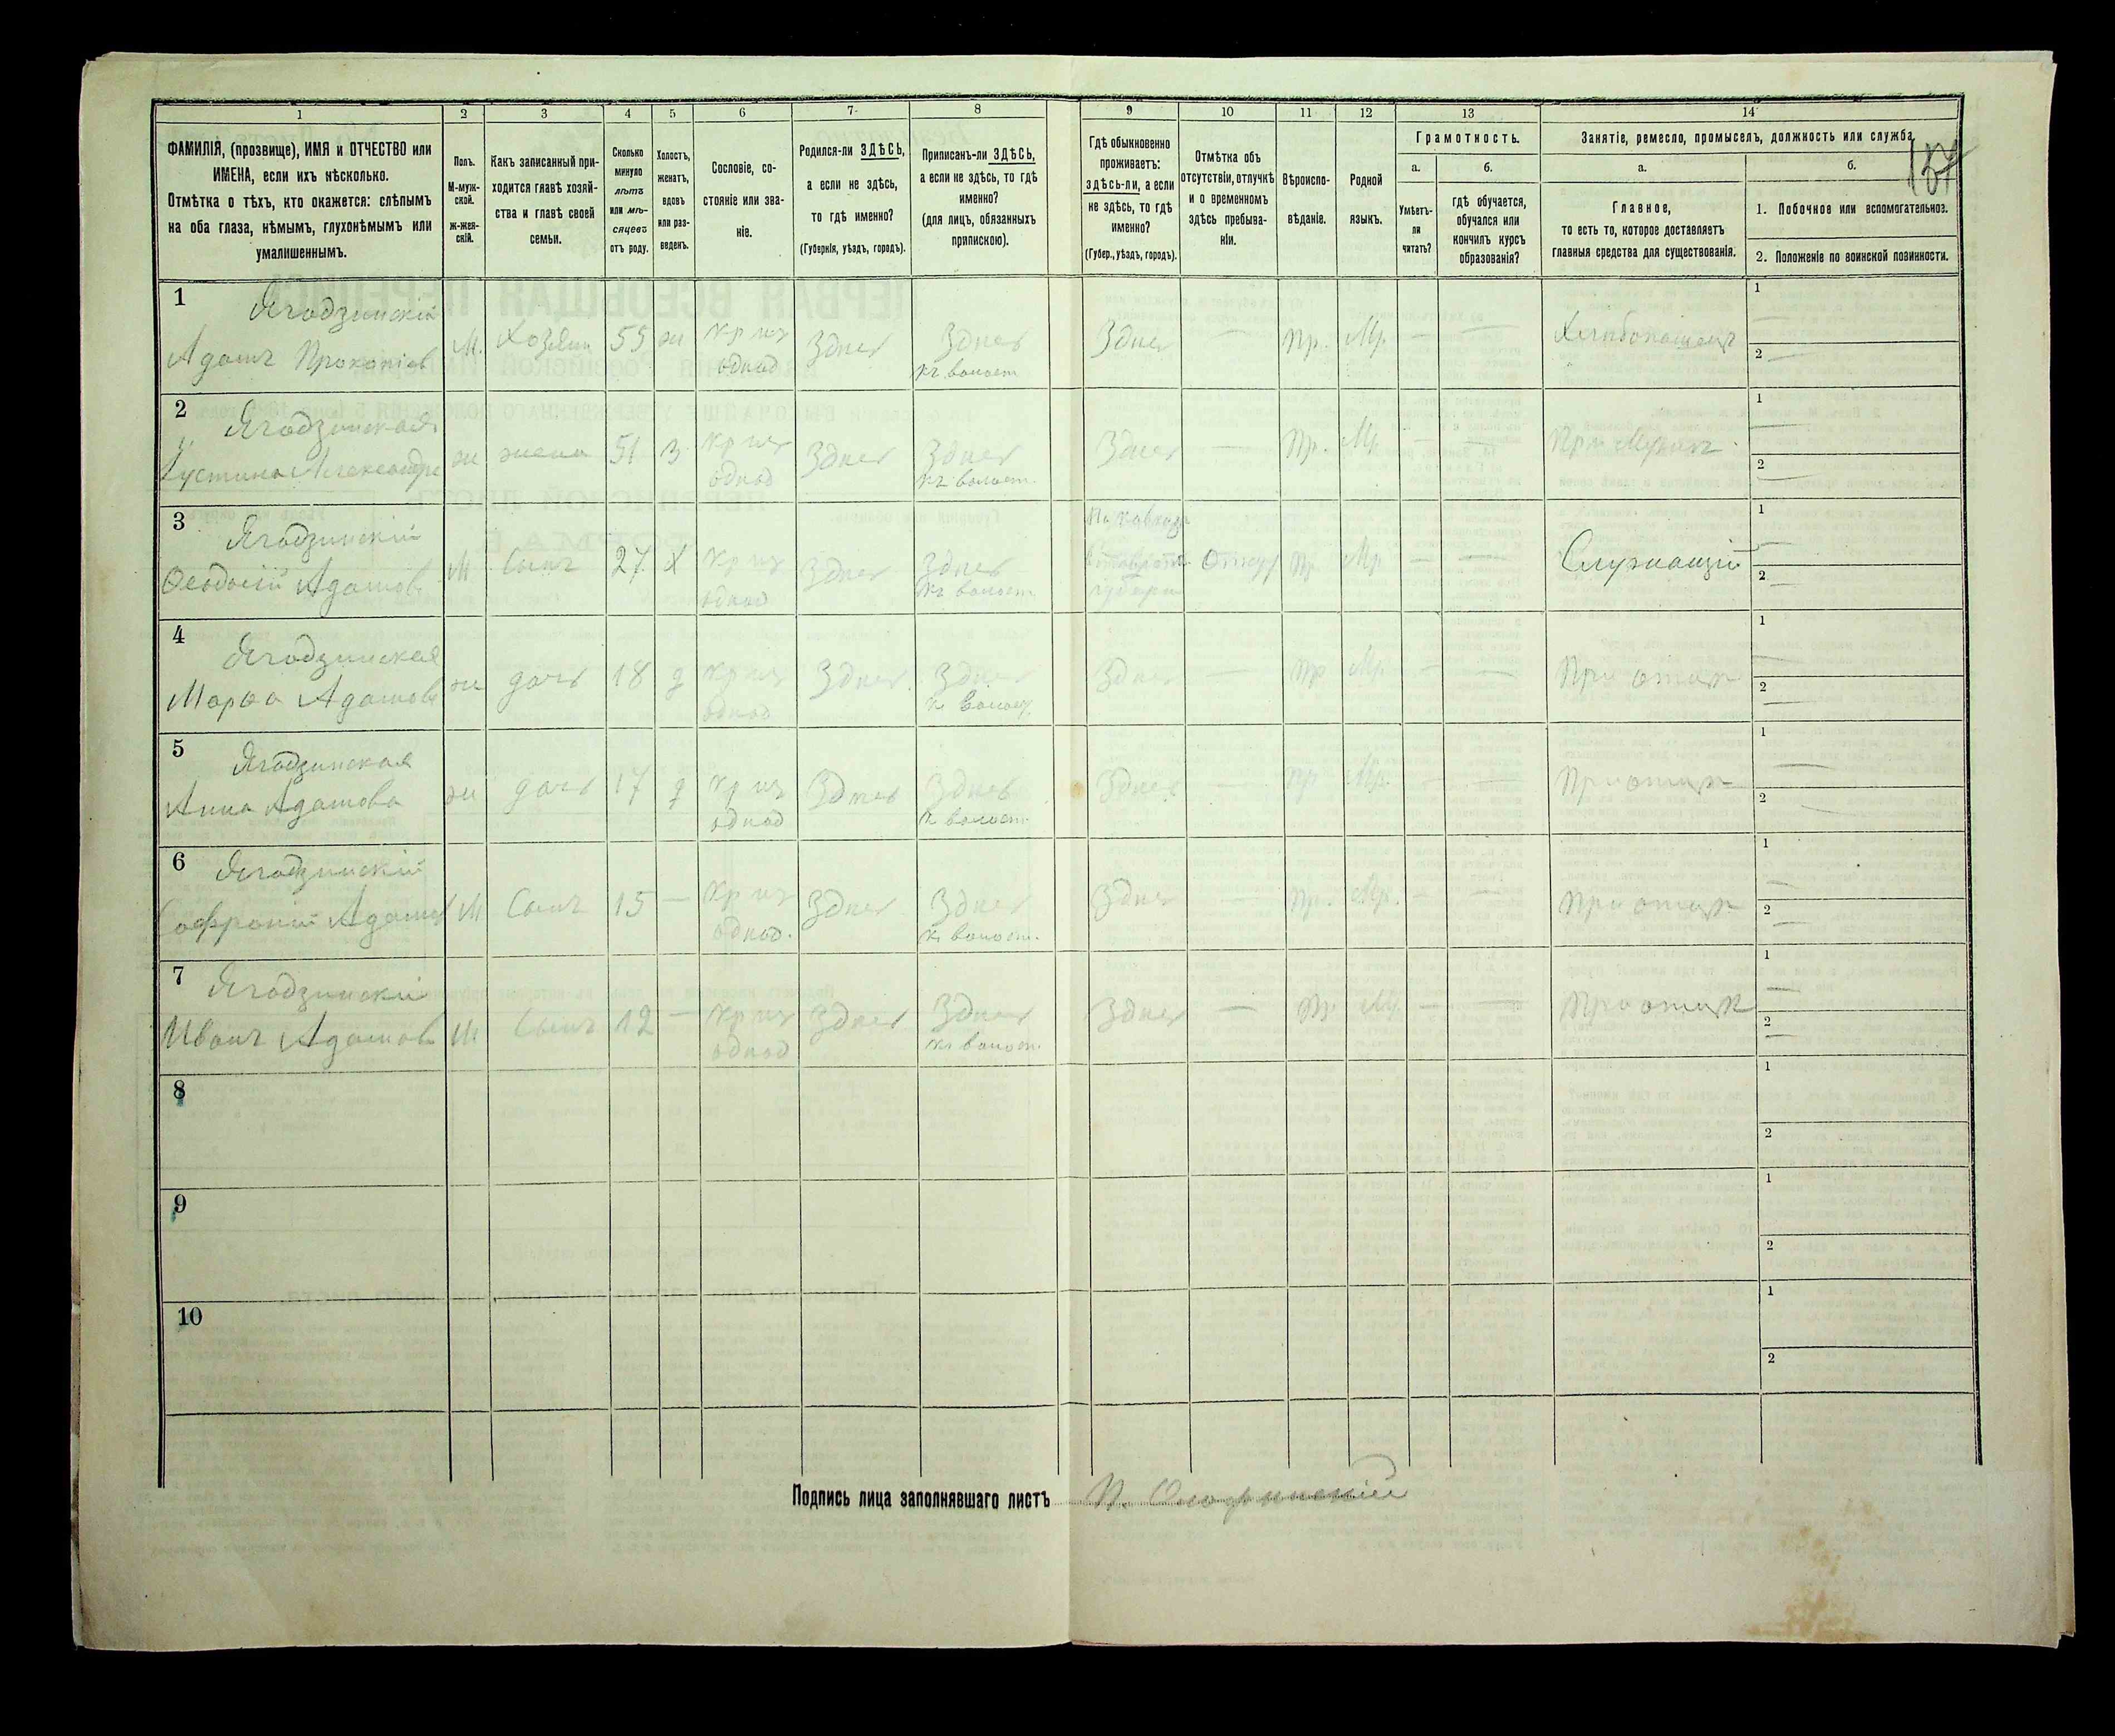 1
2
3
4
5
6
7
8
9
10
11
12
13
14
ФАМИЛІЯ, (прозвище), ИМЯ и ОТЧЕСТВО или
ИМЕНА, если ихъ нѣсколько.
Отмѣтка о тѣхъ, кто окажется: слѣпымъ
на оба глаза, нѣмымъ, глухонѣмымъ или
умалишеннымъ.
Полъ.
М-муж-
ской.
ж-жен-
скій.
Какъ записанный при-
ходится главѣ хозяй-
ства и главѣ своей
семьи.
Сколько
минуло
лѣтъ
или мѣ-
сяцевъ
отъ роду.
Холостъ,
женатъ,
вдовъ
или раз-
веденъ.
Сословіе, со-
стояніе или зва-
ніе.
Родился-ли ЗДѢСЬ,
а если не здѣсь,
то гдѣ именно?
(Губернія, уѣздъ, городъ).
Приписанъ-ли ЗДѢСЬ,
а если не здѣсь, то гдѣ
именно?
(для лицъ, обязанныхъ
припискою).
Гдѣ обыкновенно
проживаетъ:
здѣсь-ли, а если
не здѣсь, то гдѣ
именно?
(Губер., уѣздъ, городъ).
Отмѣтка объ
отсутствіи, отлучкѣ
и о временномъ
здѣсь пребыва-
ніи.
Вѣроиспо-
вѣданіе.
Родной
языкъ.
Грамотность.
а.
Умѣетъ-
ли
читать?
б.
гдѣ обучается,
обучался или
кончилъ курсъ
образованія?
Занятіе, ремесло, промыселъ, должность или служба.
а.
Главное,
то есть то, которое доставляетъ
главныя средства для существованія.
б.
1. Побочное или вспомогательное.
2. Положеніе по воинской повинности.
1
Ягодзинскій
Адамъ Прокопіев
М. Хозяин 55 ж кр изъ однод Здесь Здесь къ волост Здесь — Пр. Мр. — — Хлѣбопашец
1
2
2
Ягодзинская
Іустина Александр
ж жена 51 з кр изъ однод Здесь Здесь къ волост. Здесь — Пр. Мр. — — При Мужѣ
1
2
3
Ягодзинскій
Феодосій Адамов
М Сынъ 27 х кр изъ однод Здесь Здесь къ волост На Кавказе губерн Пр Мр — — Служащій
1
2
4
Ягодзинская
Марфа Адамов
ж дочь 18 д кр изъ однод Здесь Здесь к волост Здесь — Пр Мр. — — При отце
1
2
5
Ягодзинская
Анна Адамова
ж дочь 17 д кр изъ однод Здесь Здесь к волост Здесь — Пр Мр. — — При отце
1
2
6
Ягодзинскій
Софроній Адамов
М Сынъ 15 — кр изъ однод. Здесь Здесь к волост. Здесь — Пр. Мр. — — При отце
1
2
7
Ягодзинскій
Иванъ Адамов
М Сынъ 12 — кр изъ однод Здесь Здесь к волост. Здесь — Пр Мр. — — При отце
1
2
8
1
2
9
1
2
10
1
2
Подпись лица заполнявшаго листъ